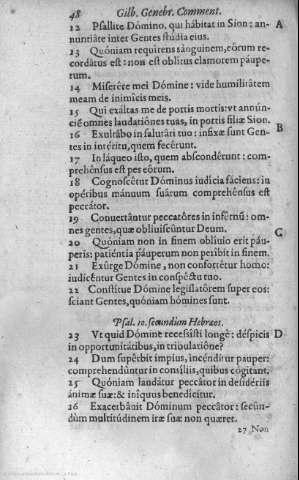 48 Gilb. Genebr. Comment.
12 Psallite Dómino, qui hábitat in Sion: an-
nuntiáte inter Gentes studia eius. A
13 Quóniam requirens sánguinem, eórum re-
cordátus est: non est oblitus clamorem páupe-
rum.
14 Miserêre mei Dómine: vide humilitâtem
meam de inimicis meis.
15 Qui exáltas me de portis mortis: vt annún-
ciē omnes laudatiônes tuas, in portis filiæ Sion.
16 Exultâbo in salutâri tuo: infixæ sunt Gen- B
tes in intéritu, quem fecêrunt.
17 In láqueo isto, quem abscondêrunt: com-
prehénsus est pes eôrum.
18 Cognoscêtur Dóminus iudicia fáciens: in
opéribus mánuum suárum comprehénsus est
peccátor.
19 Conuertântur peccatôres in infernū: om-
nes gentes, quæ obliuiscúntur Deum. C
20 Quóniam non in finem obliuio erit páu-
peris: patiéntia páuperum non períbit in finem.
21 Exúrge Dómine, non confortétur homo:
iudicéntur Gentes in conspéctu tuo.
22 Constitue Dómine legislatôrem super eos:
sciant Gentes, quóniam hómines sunt.
Psal. 10. secundùm Hebræos.
23 Vt quid Dómine recessísti longè: déspicis D
in opportunitátibus, in tribulatiône?
24 Dum supêrbit impius, incénditur pauper:
comprehendúntur in consíliis, quibus cógitant.
25 Quóniam laudátur peccátor in desidériis
ánimæ suæ: & iníquus benedícitur.
26 Exacerbâuit Dóminum peccâtor: secún-
dùm multitúdinem iræ suæ non quæret.
27 Non